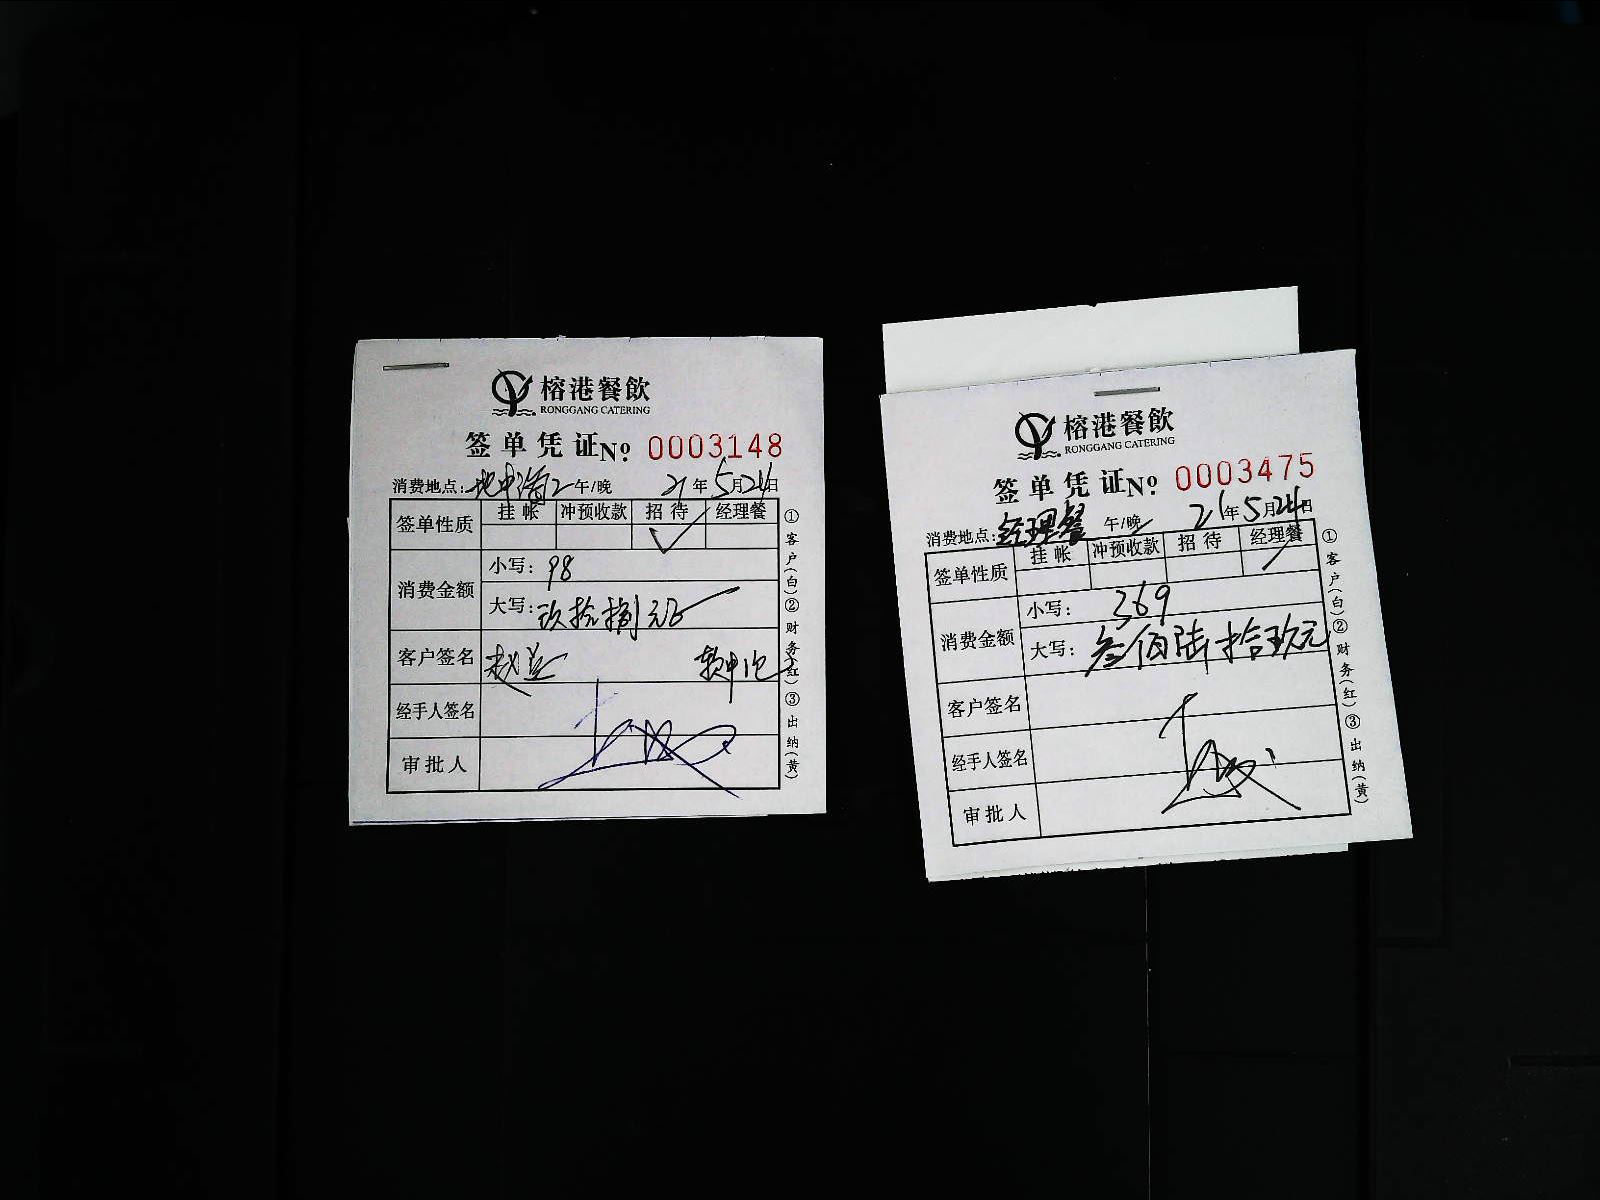 榕港餐飲
RONGGANG CATERING
签单凭证 No: 0003148
消费地点: 地中海2 午/晚 21年5月24日
签单性质 挂帐 冲预收款 招待 经理餐
✓
消费金额 小写: 98
大写: 玖拾捌元
客户签名 赵
经手人签名
审批人
①客户(白)②财务(红)③出纳(黄)
榕港餐飲
RONGGANG CATERING
签单凭证 No: 0003475
消费地点: 经理餐 午/晚 21年5月24日
签单性质 挂帐 冲预收款 招待 经理餐
消费金额 小写: 369
大写: 叁佰陆拾玖元
客户签名
经手人签名
审批人
①客户(白)②财务(红)③出纳(黄)